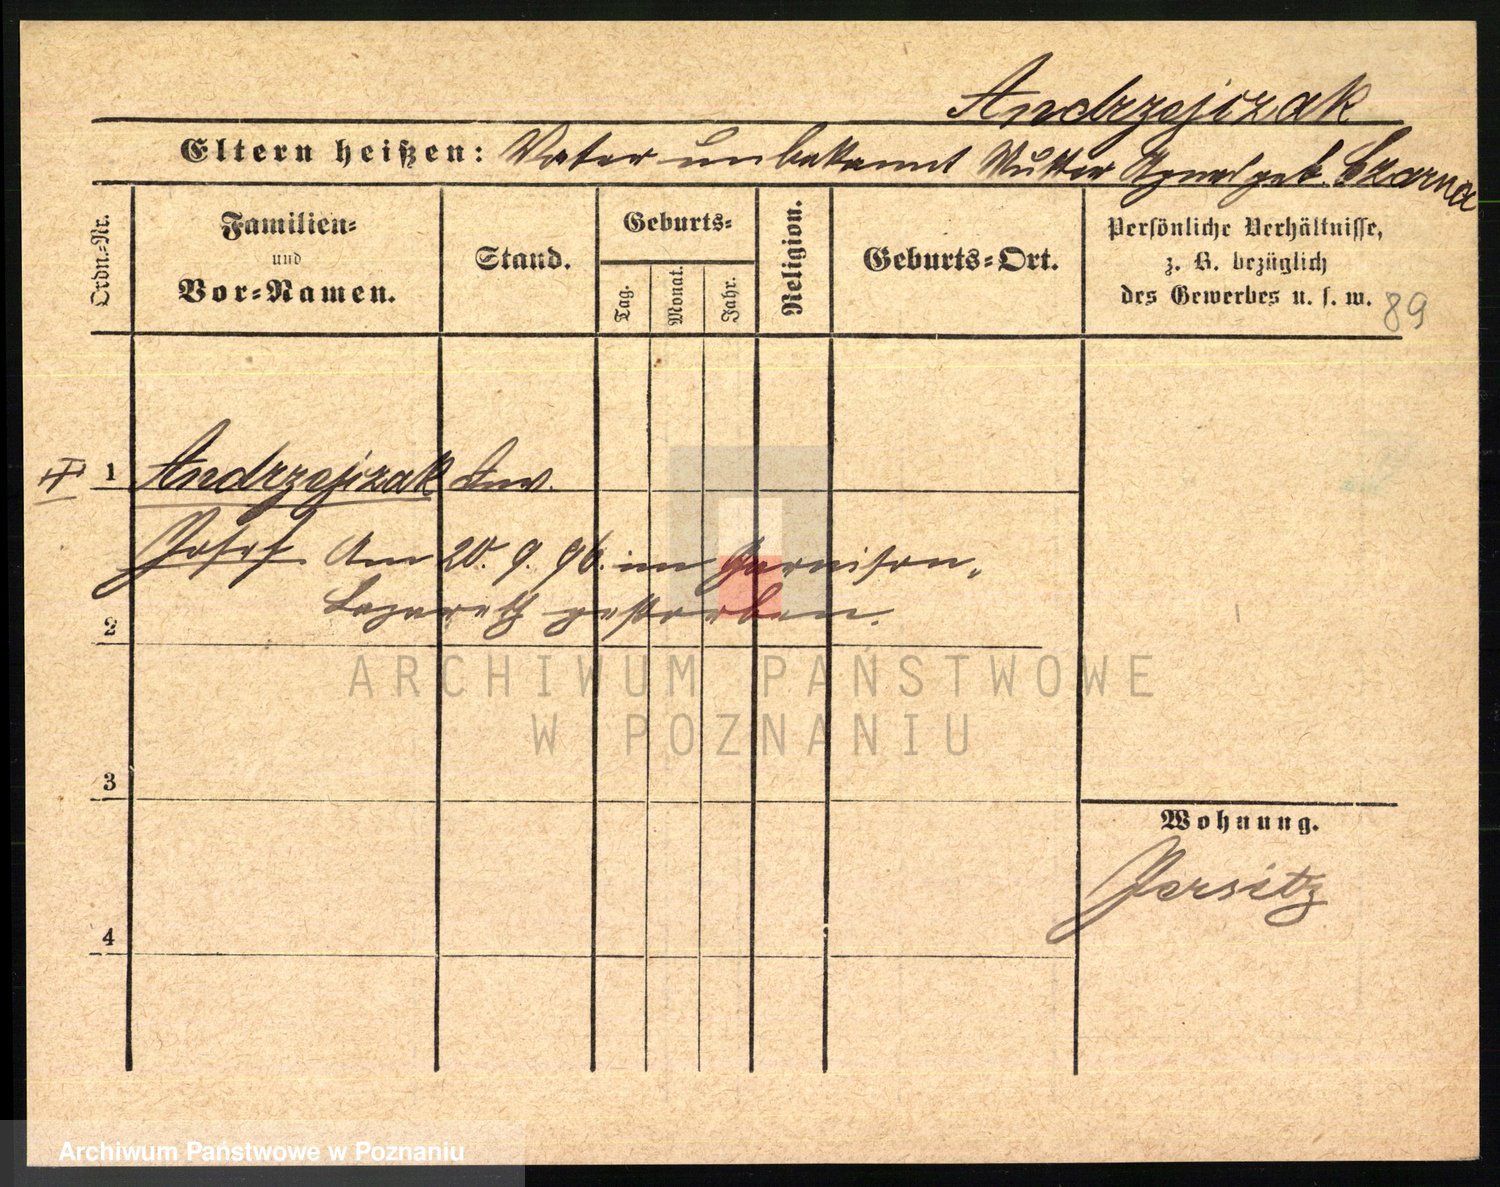 Andrzejczak
Eltern heißen: Vater unbekannt Mutter Agnes geb. Czarna
Ordn.-Nr.
Familien-
und
Vor-Namen.
Stand.
Geburts-
Tag.
Monat.
Jahr.
Religion.
Geburts-Ort.
Persönliche Verhältnisse,
z. B. bezüglich
des Gewerbes u. s. w.
89
1 Andrzejczak Inv.
Josef Am 20. 9. 96. im Garnison-
Lazareth gestorben.
2
3
4
Wohnung.
Jersitz
ARCHIWUM PAŃSTWOWE
W POZNANIU
Archiwum Państwowe w Poznaniu